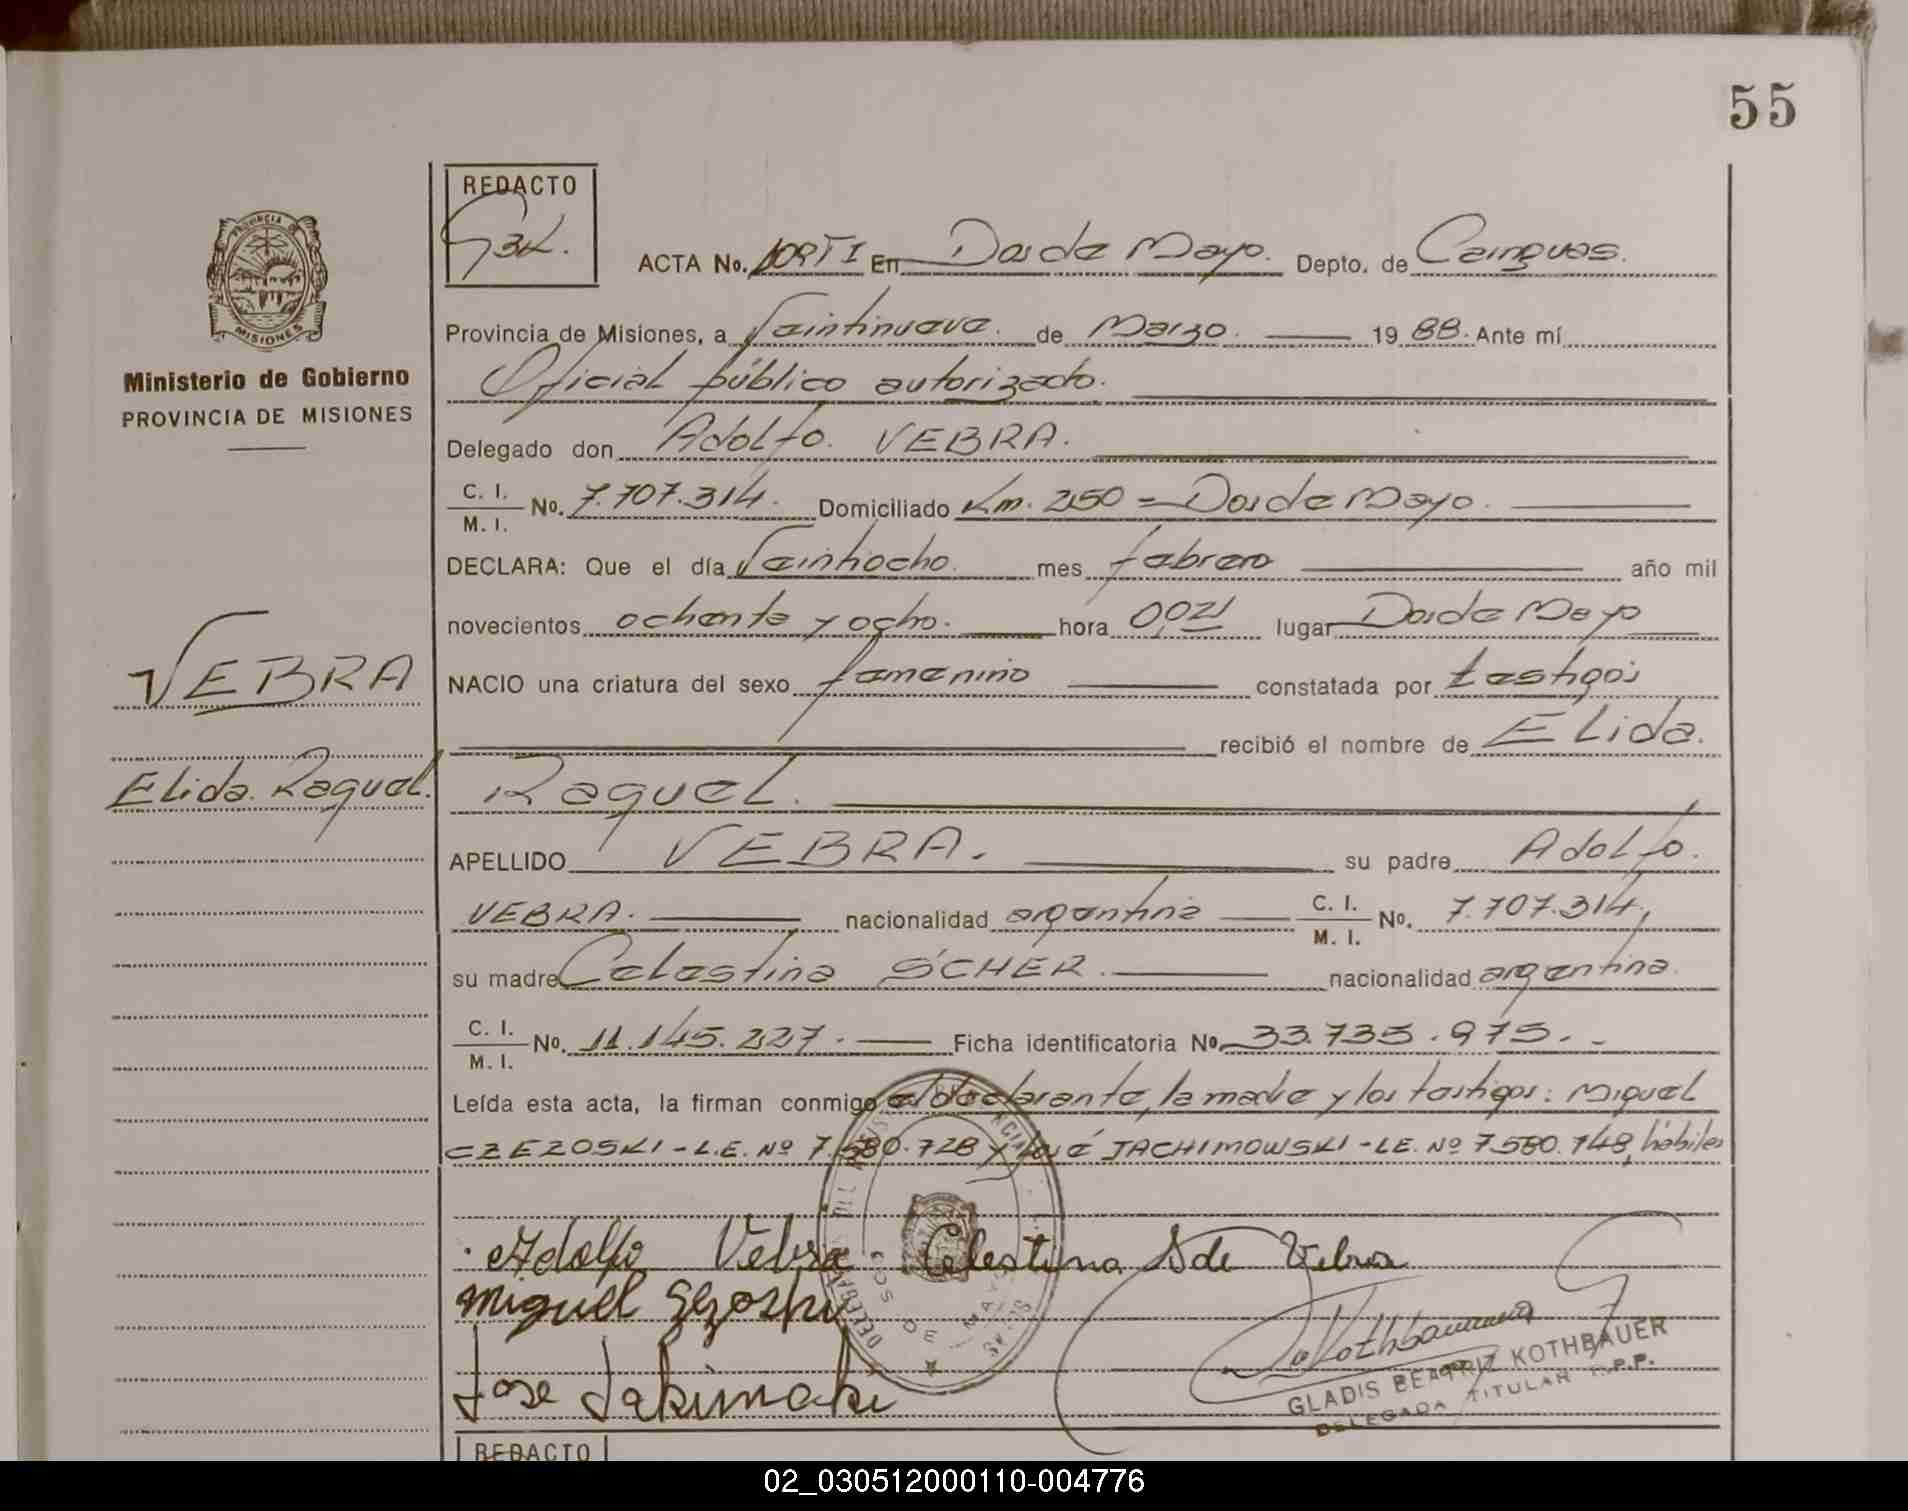 55
REDACTO
ACTA No. 109 T I En Dos de Mayo. Depto. de Cainguas.
Provincia de Misiones, a Veintinueve. de Marzo. 19 88. Ante mí
Oficial público autorizado.
Delegado don Adolfo. VEBRA.
C. I. / M. I. No. 7.707.314. Domiciliado Km. 250 = Dos de Mayo.
DECLARA: Que el día Veintiocho. mes febrero año mil
novecientos ochenta y ocho. hora 0,021 lugar Dos de Mayo
NACIO una criatura del sexo femenino constatada por testigos
recibió el nombre de Elida.
Raquel.
APELLIDO VEBRA. su padre Adolfo.
VEBRA. nacionalidad argentina C. I. / M. I. No. 7.707.314,
su madre Celestina SCHER. nacionalidad argentina.
C. I. / M. I. No. 11.145.227. Ficha identificatoria No. 33.735.975.-
Leída esta acta, la firman conmigo el declarante, la madre y los testigos: Miguel
CZEZOSKI - L.E. Nº 7.580.728 y José JACHIMOWSKI - LE. Nº 7.580.748, hábiles
Adolfo Vebra Celestina S de Vebra
Miguel
Jose
Kothbauer
GLADIS BEATRIZ KOTHBAUER
DELEGADA TITULAR R.P.P.
REDACTO
PROVINCIA DE MISIONES
Ministerio de Gobierno
PROVINCIA DE MISIONES
VEBRA
Elida Raquel.
02_030512000110-004776